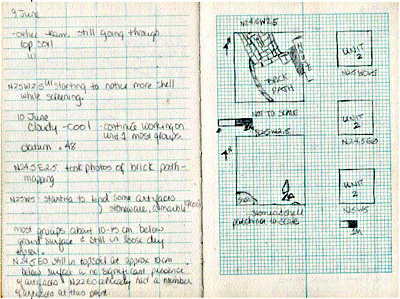 9 June
- other team still going through
top soil
N25W2.5 starting to notice more shell
while screening.
10 June
Cloudy - cool - continue working on
Unit 2 most groups.
datum = .48
N24.5E2.5 took photos of brick path -
mapping
N25W5 starting to find some artifacts
Stoneware, a marble
most groups about 10-15 cm below
ground surface & still in loose clay
topsoil
N24.5E0 still in topsoil at approx 10cm
below surface & no significant presence
of artifacts & N22E0 already had a number
of artifacts at this point.
N24.5W2.5
BRICK
PATH
NOT TO SCALE
N25W2.5
Shell
UNIT
2
UNIT
2
N24.5E0
UNIT
2
N25W5
1M